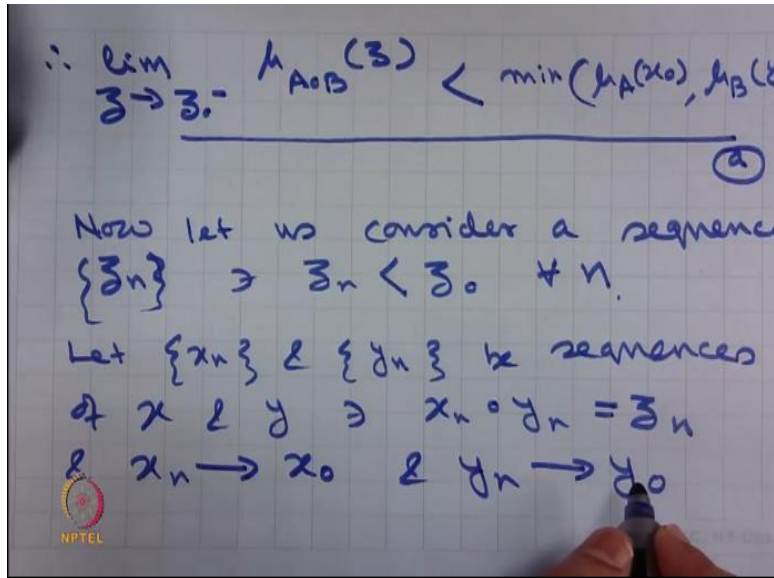 ∴ lim μ_{A∘B}(z) < min(μ_A(x₀), μ_B(
z → z₀⁻
(a)
Now let us consider a sequenc
{z_n} ∋ z_n < z₀ ∀ n.
Let {x_n} & {y_n} be sequences
of x & y ∋ x_n ∘ y_n = z_n
& x_n → x₀ & y_n → y₀
NPTEL